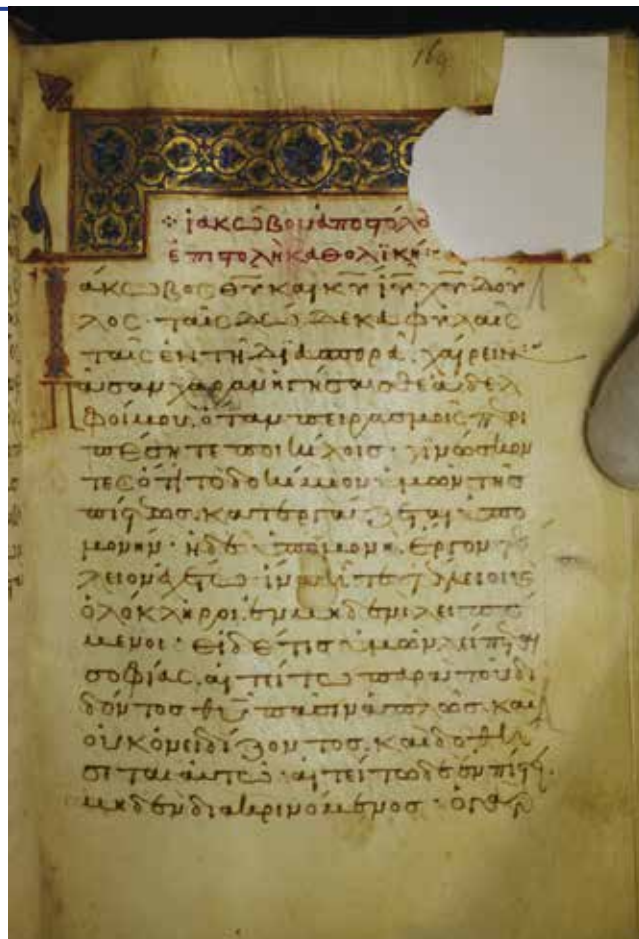 169
ἰακώβου ἀποστόλο
ἐπιστολὴ καθολϊκή:
Ἰάκωβος θυ καὶ κυ ιυ χυ δοῦ
λος· ταῖς δώδεκα φυλαῖς
ταῖς ἐν τῆ διασπορᾶ. χαίρειν:
Πᾶσαν χαρὰν ἡγήσασθε ἀδελ
φοί μου, ὅταν πειρασμοῖς περι
πέσητε ποικίλοις· γινώσκον
τες ὅτι τὸ δοκίμιον ὑμῶν τῆς
πίστεως. κατεργάζεται ὑπο
μονήν· ἡ δὲ ὑπομονὴ. ἔργον τέ
λειον ἐχέτω· ἵνα ἦτε τέλειοι καὶ
ὁλόκληροι. ἐν μηδενὶ λειπό
μενοι· εἰ δέ τις ὑμῶν λείπεται
σοφίας. αἰτείτω παρὰ τοῦ δι
δόντος θυ πᾶσιν ἁπλῶς. καὶ
οὐκ ὀνειδίζοντος. καὶ δοθή
σεται αὐτῶ· αἰτείτω δὲ ἐν πίστει.
μηδὲν διακρινόμενος· ὁ γὰρ